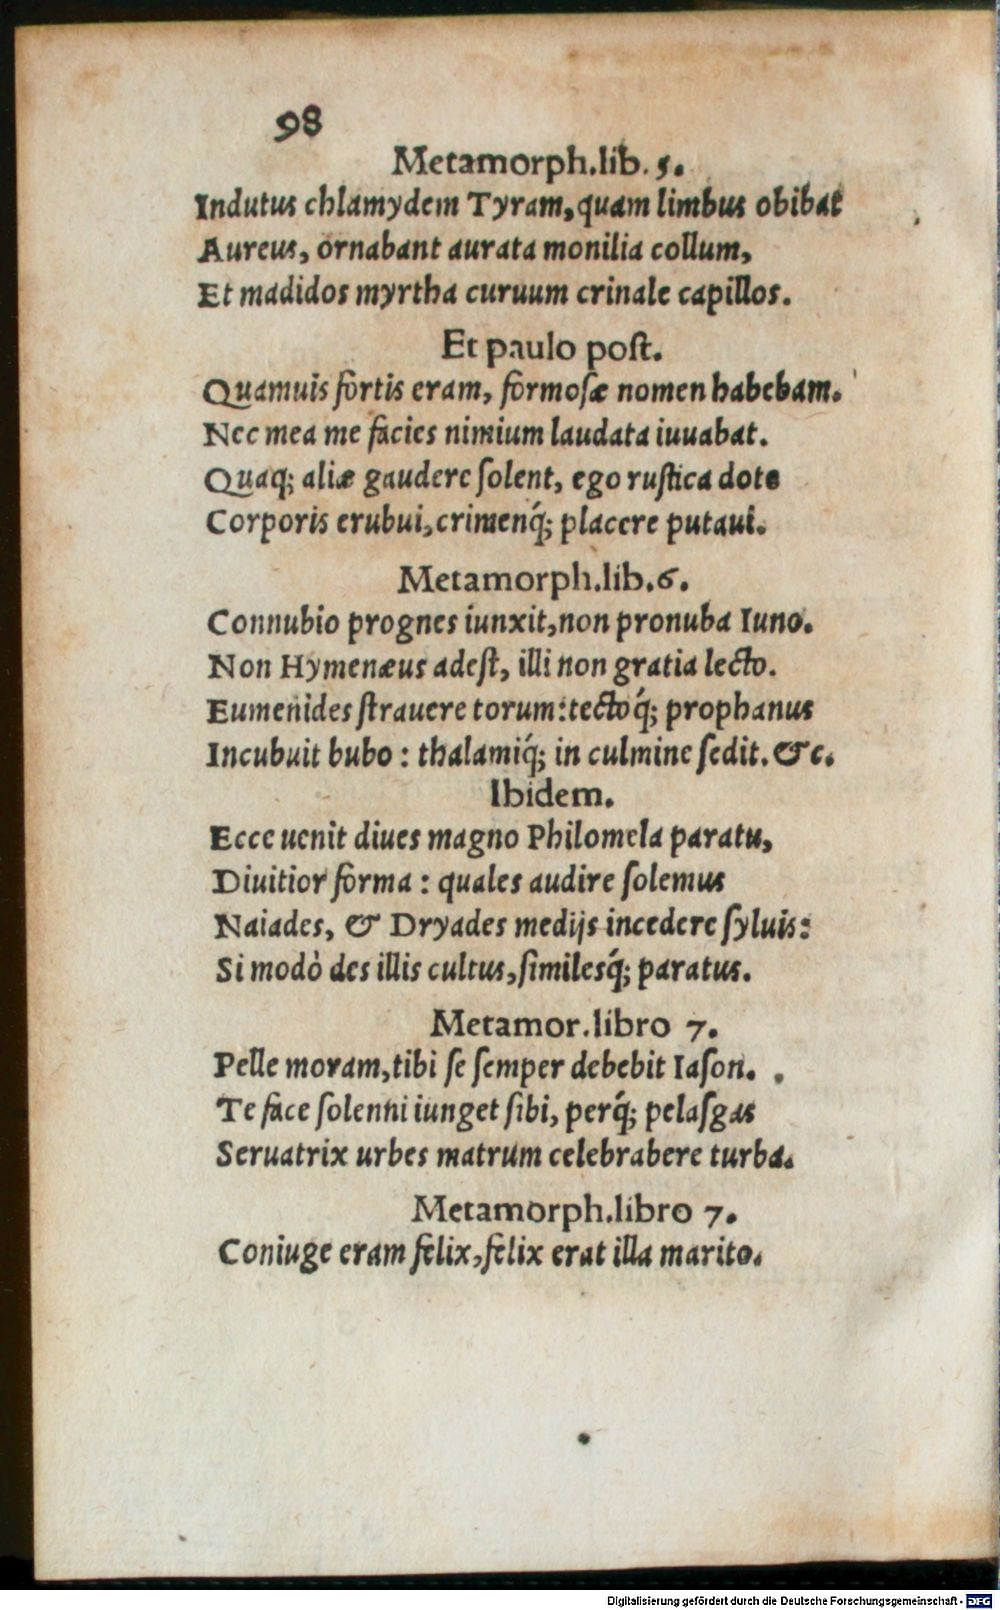 98
Metamorph.lib. 5.
Indutus chlamydem Tyram, quam limbus obibat
Aureus, ornabant aurata monilia collum,
Et madidos myrtha curuum crinale capillos.
Et paulo poſt.
Quamuis fortis eram, formoſæ nomen habebam.
Nec mea me facies nimium laudata iuuabat.
Quaq; aliæ gaudere ſolent, ego ruſtica dote
Corporis erubui, crimenq́; placere putaui.
Metamorph.lib.6.
Connubio prognes iunxit, non pronuba Iuno.
Non Hymenæus adeſt, illi non gratia lecto.
Eumenides ſtrauere torum: tectoq́; prophanus
Incubuit bubo: thalamiq́; in culmine ſedit. &c.
Ibidem.
Ecce uenit diues magno Philomela paratu,
Diuitior forma: quales audire ſolemus
Naiades, & Dryades medijs incedere ſyluis:
Si modò des illis cultus, ſimilesq́; paratus.
Metamor.libro 7.
Pelle moram, tibi ſe ſemper debebit Iaſon.
Te face ſolenni iunget ſibi, perq́; pelaſgas
Seruatrix urbes matrum celebrabere turba.
Metamorph.libro 7.
Coniuge eram felix, felix erat illa marito.
Digitalisierung gefördert durch die Deutsche Forschungsgemeinschaft - DFG